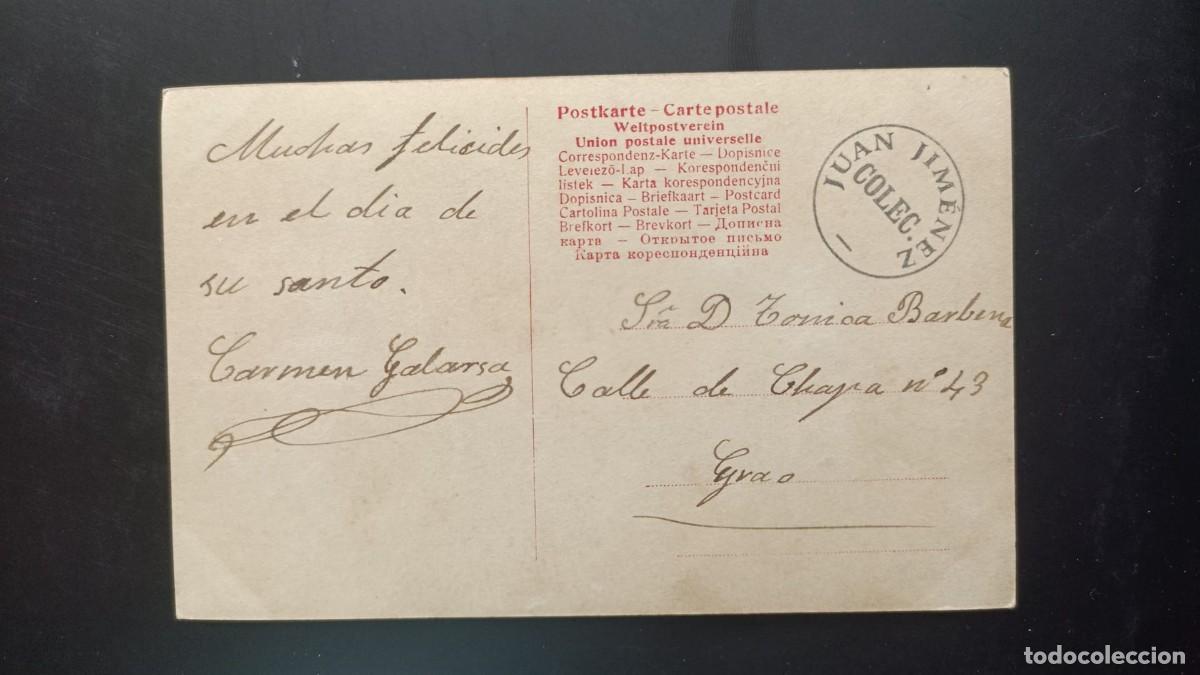 Muchas felicides
en el dia de
su santo.
Carmen Galarsa
Postkarte – Carte postale
Weltpostverein
Union postale universelle
Correspondenz-Karte — Dopisnice
Levelező-Lap — Korespondenční
lístek — Karta korespondencyjna
Dopisnica — Briefkaart — Postcard
Cartolina Postale — Tarjeta Postal
Brefkort — Brevkort — Дописна
карта — Открытое письмо
Карта кореспонденційна
JUAN JIMÉNEZ
COLEC.
Sra D Tonica Barbena
Calle de Chapa nº 43
Grao
todocoleccion